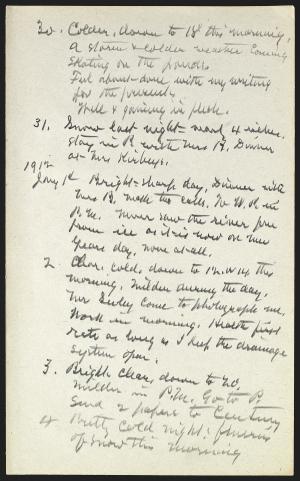 30. Colder, down to 18 this morning,
a storm & colder weather coming
Skating on the ponds.
Feel about done with my writing
for the present.
Well & gaining in flesh.
31. Snow last night - nearly 4 inches.
stay in P. with Mrs B. Dinner
at Mrs
1912
Jany 1st Bright sharp day, Dinner with
Mrs B. make two calls. To W. P. in
P.M. Never saw the river free
from ice as it is now on New
Years day, none at all.
2. Clear, cold, down to 12 or 14 this
morning. Milder during the day.
Mr come to photograph me.
Work in morning. Health first
rate as long as I keep the drainage
system open.
3. Bright clear, down to 20.
Milder in P.M. Go to P.
Send 2 papers to Century
4 Pretty cold night; flurries
of snow this morning